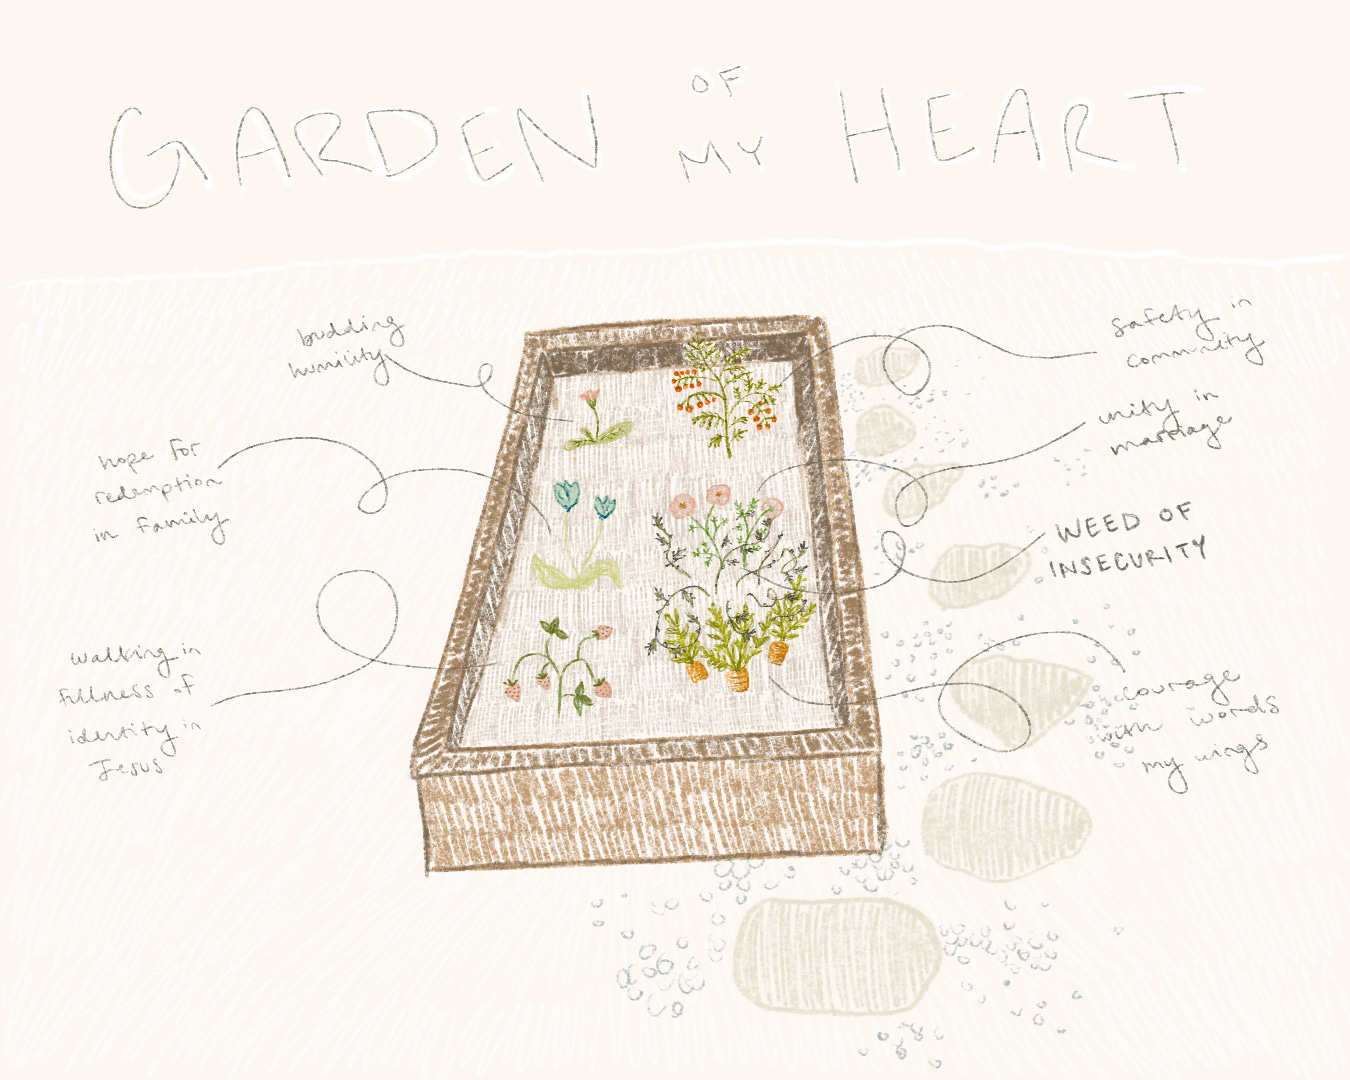 GARDEN OF MY HEART
budding
humility
hope for
redemption
in family
walking in
fullness of
identity in
Jesus
safety in
community
unity in
marriage
WEED OF
INSECURITY
courage
with words
my wings